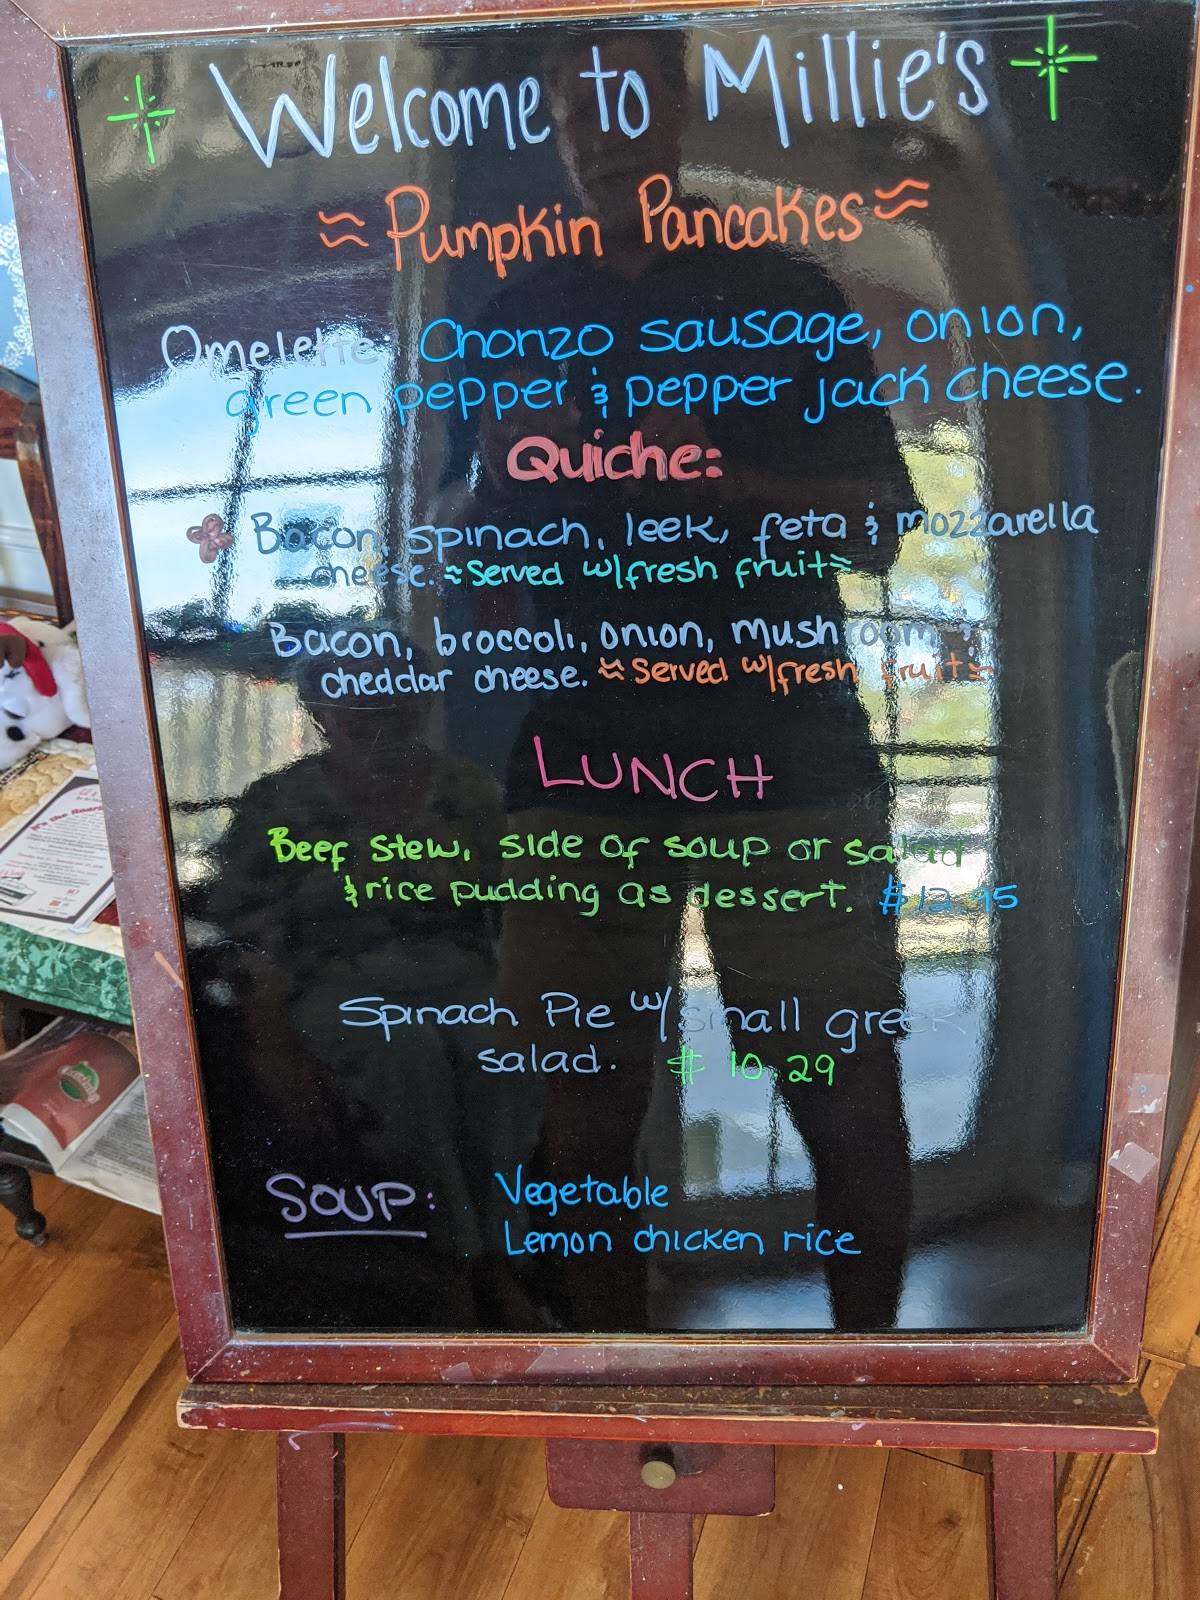 Welcome to Millie's
≈ Pumpkin Pancakes ≈
Omelette: Chorizo sausage, onion,
green pepper & pepper jack cheese.
Quiche:
Bacon, spinach, leek, feta & mozzarella
cheese. ≈ Served w/fresh fruit ≈
Bacon, broccoli, onion, mushroom &
cheddar cheese. ≈ Served w/fresh fruit ≈
LUNCH
Beef stew, side of soup or salad
& rice pudding as dessert. $12.95
Spinach Pie w/ small greek
salad. $10.29
SOUP: Vegetable
Lemon chicken rice